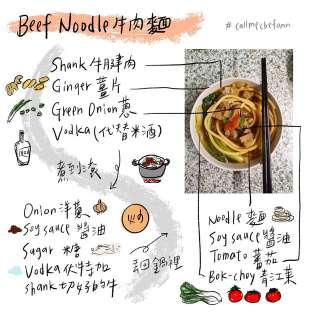 Beef Noodle 牛肉麵
# callmechefann
Shank 牛腱肉
Ginger 薑片
Green Onion 蔥
Vodka (代替米酒)
煮到滾
Onion 洋蔥
Soy sauce 醬油
Sugar 糖
Vodka 伏特加
shank 切好的牛
炒
丟回鍋裡
Noodle 麵
Soy sauce 醬油
Tomato 番茄
Bok-choy 青江菜